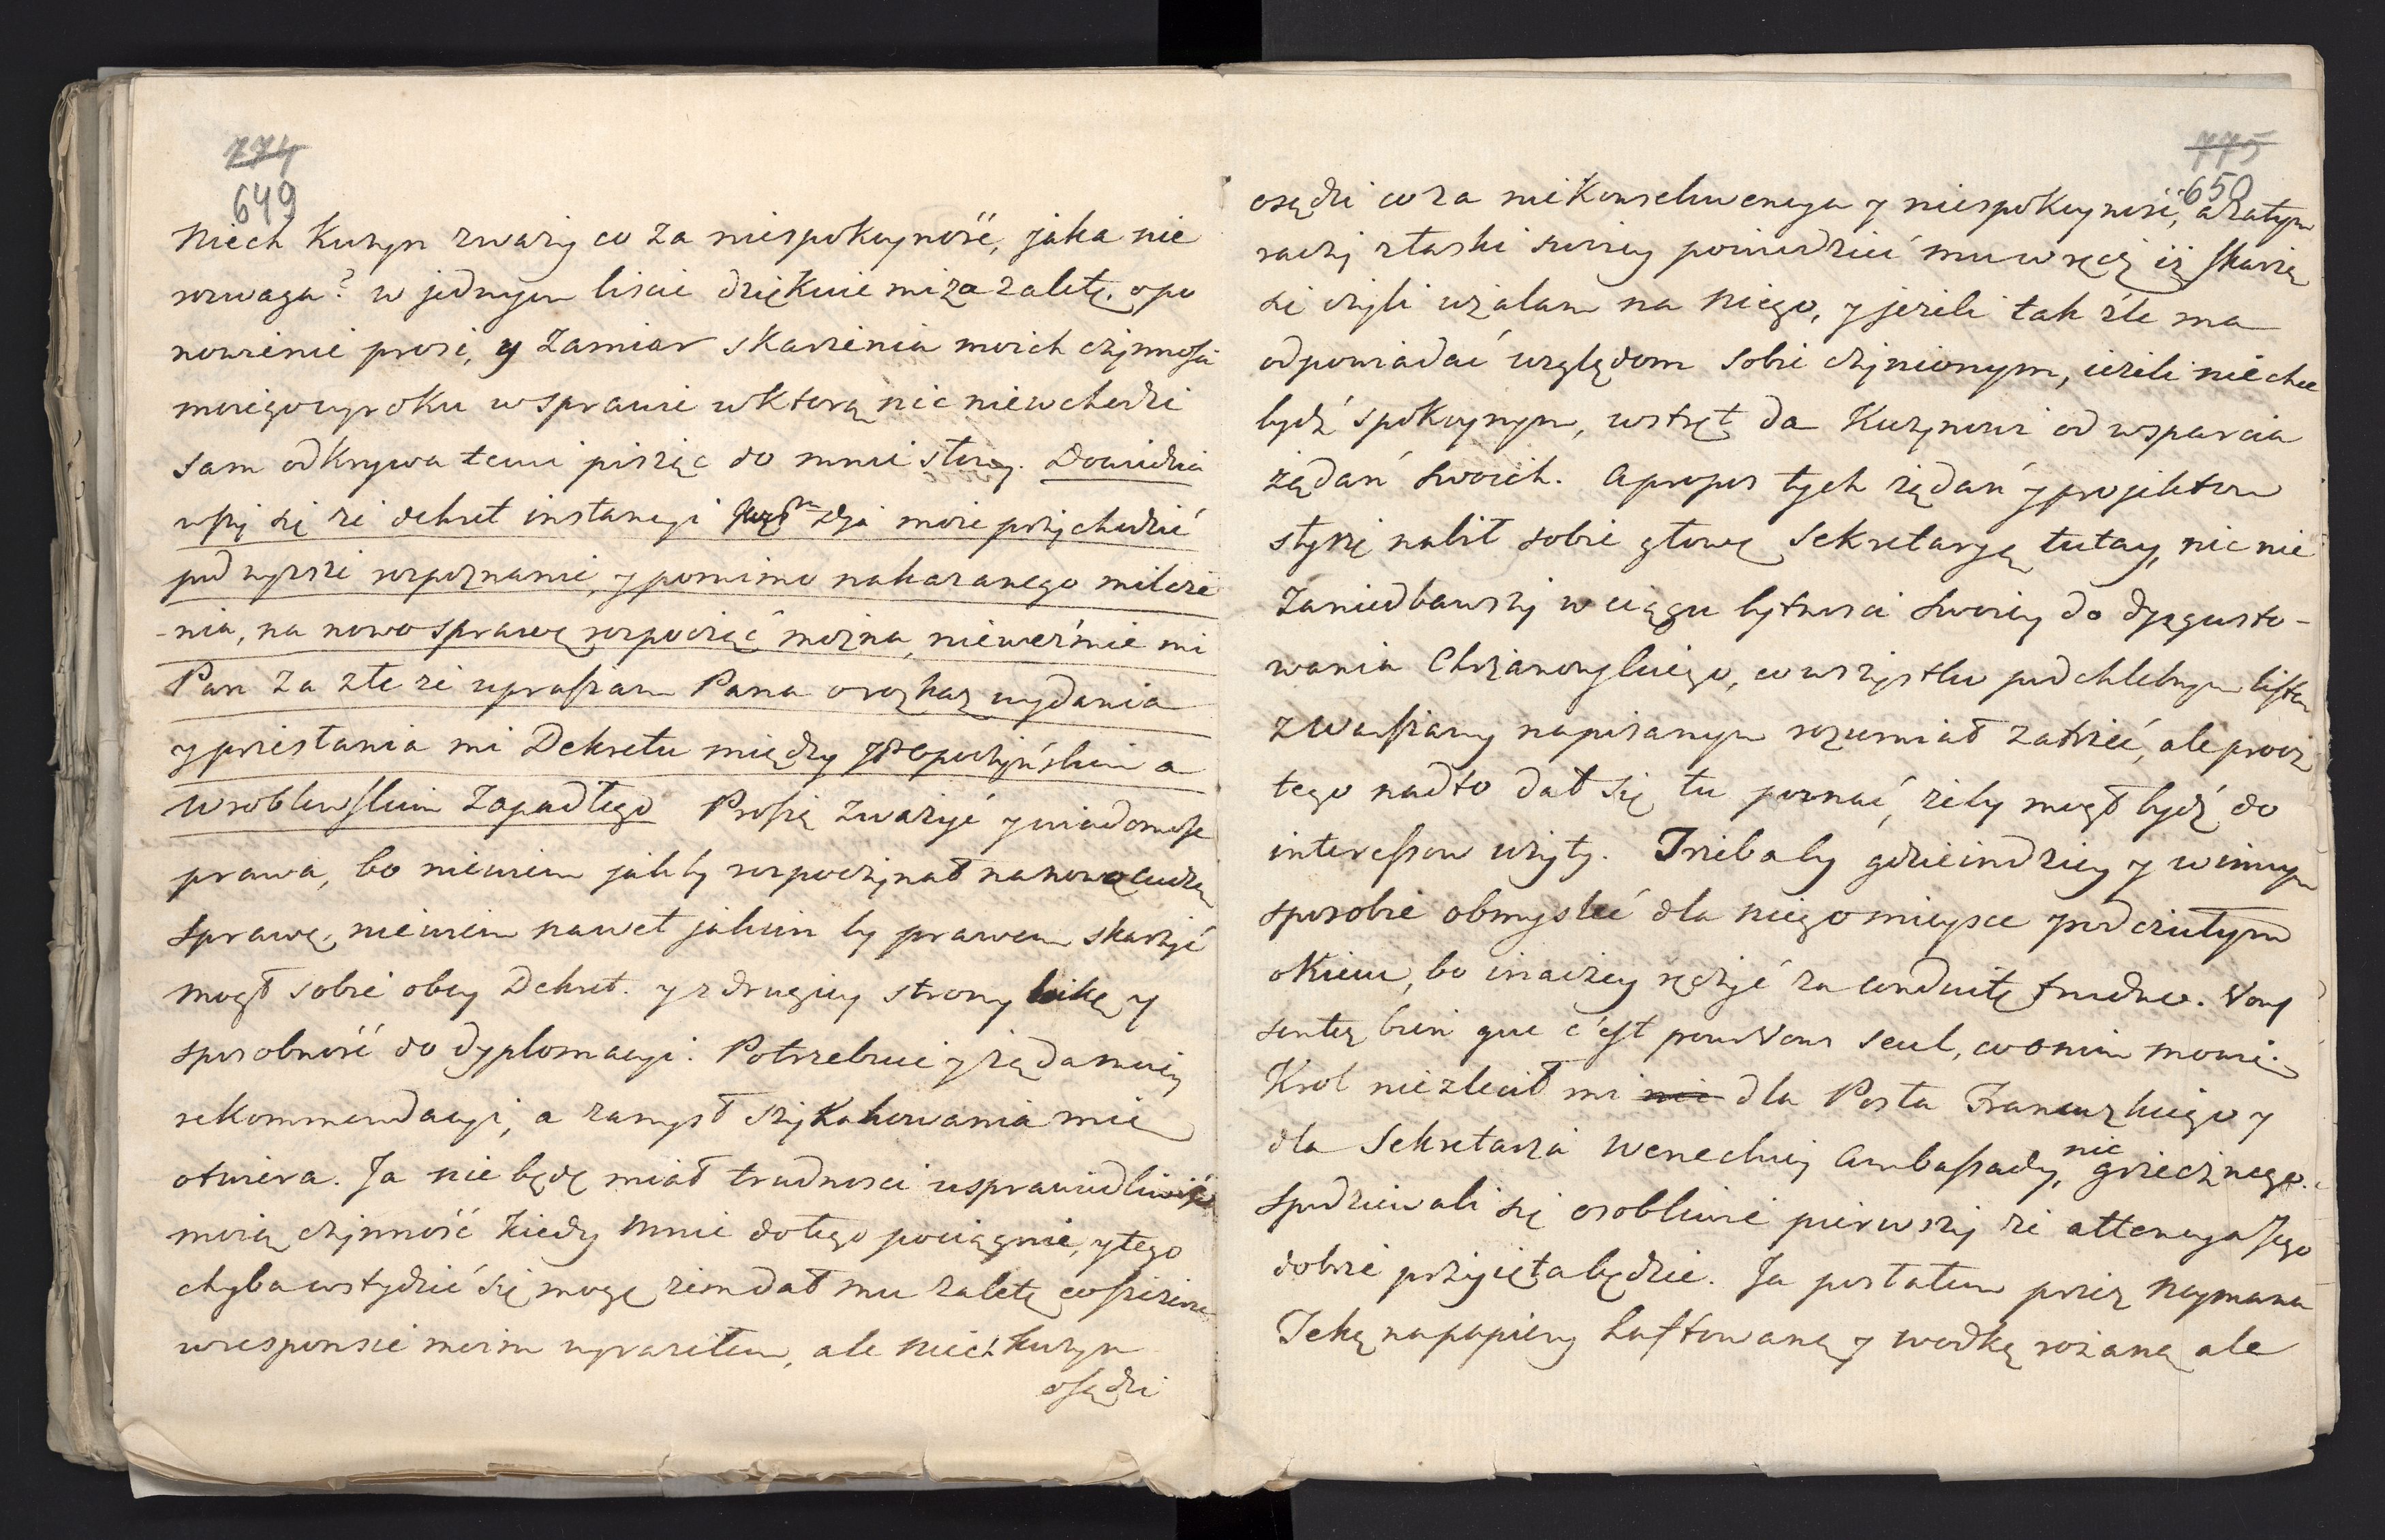 774
649
Niech Kuzyn zważy co za niespokoyność, jaka nie
rozwaga? w jednym liscie dziękuie mi za zaletę, o po
nowienie prosi, y zamiar skarżenia moich czynności
moiego wyroku w sprawie w ktorą nic niewchodzi
sam odkrywa temi pisząc do mnie słowy. Dowiedzia
wszy się że dekret instancyi może przychodzić
pod wyższe rozpoznanie, y pomimo nakazanego milcze
-nia, na nowo sprawę rozpocząć można, nieweźmie mi
Pan za złe że upraszam Pana o rozkaz wydania
y przesłania mi Dekretu między a
Wroblewskim zapadłego Proszę zważyć y wiadomość
prawa, bo niewiem jakby rozpoczynał nanowo cudzą
sprawę, niewiem nawet jakim by prawem skarżyć
mogł sobie obcy Dekret. y z drugiey strony y
sposobność do dyplomacyi. Potrzebuie y żąda moiey
rekommendacyi, a zamysł szykanowania mię
otwiera. Ja nie będę miał trudnosci usprawiedliwić
moią czynność kiedy mnie do tego pociągnie, y tego
chyba wstydzić się mogę żem dał mu zaletę co szczerze
w responsie moim wyraziłem, ale niech Kuzyn
osądzi
775
650
osądzi co za niekonsekwencya y niespokoyność, a zatym
raczy z łaski swoiey powiedzieć mu w ręcz iż skarżę
się czyli użalam na niego, y jeżeli tak źle ma
odpowiadać względom sobie czynionym, ieżeli nie chce
bydź spokoynym, wstręt da Kuzynowi od wsparcia
żądań swoich. Apropos tych żądań y projektow
słyszę nabił sobie głowę Sekretaryą tutay, nic nie
zaniedbawszy w ciągu bytnosci swoiey do dyzgusto-
wania Chrzanowskiego, co wszystko pod chlebnym listem
z Warszawy napisanym rozumiał zatrzeć, ale procz
tego nadto dał się tu poznać, żeby mogł bydź do
interessow użyty. Trzebaby gdzieindziey y w innym
sposobie obmyslić dla niego mieysce y pod czułym
okiem, bo inaczey ręczyć za conduitę trudno. Vous
sentez bien que c'est pour Vous seul, co o nim mowię.
Krol nie zlecił mi dla Posła Francuzkiego y
dla Sekretarza Weneckiey Ambassady, nic grzecznego.
Spodziewali się osobliwie pierwszy że attencya Jego
dobrze przyięta będzie. Ja posłałem przez Neymana
Tekę na papiery haftowaną y wodkę rożaną ale